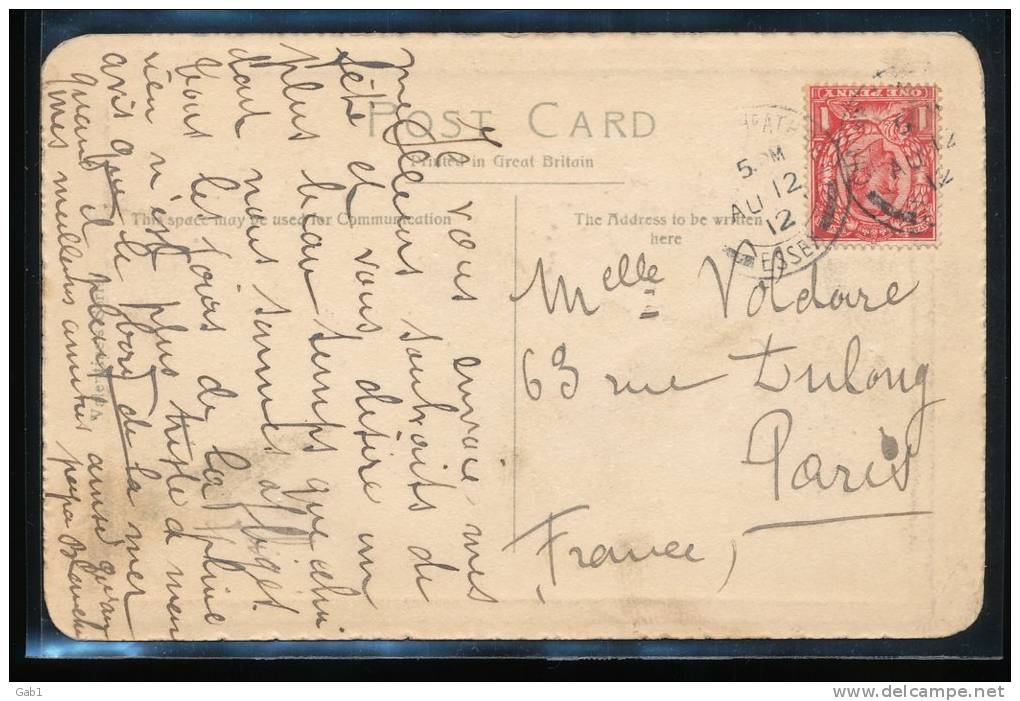 POST CARD
Printed in Great Britain
This space may be used for Communication
The Address to be written
here
ONE PENNY
1 1
5. PM
AU 12
12
ESSEX
AU 12
12
Melle Voldoire
63 rue Dulong
Paris
France
Je vous envoie mes
meilleurs souhaits de
fête et vous désire un
plus beau temps que celui
dont nous sommes affligés.
Tous les jours de la pluie
rien n'est plus triste à mon
avis que le bord de la mer
quand il pleut
mes meilleures amitiés papa Blanche
Gab1
www.delcampe.net